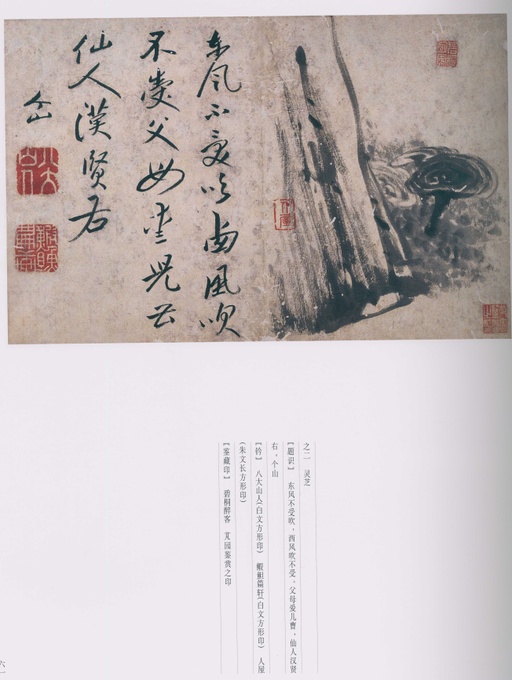 东風不受吹西風吹
不受父母愛兒曹
仙人漢賢右
个山
之二 灵芝
【题识】 东风不受吹,西风吹不受。父母爱儿曹,仙人汉贤
右。个山
【钤】 八大山人(白文方形印) 鰕䱇篇轩(白文方形印) 人屋
(朱文长方形印)
【鉴藏印】 碧桐醉客 艾园鉴赏之印